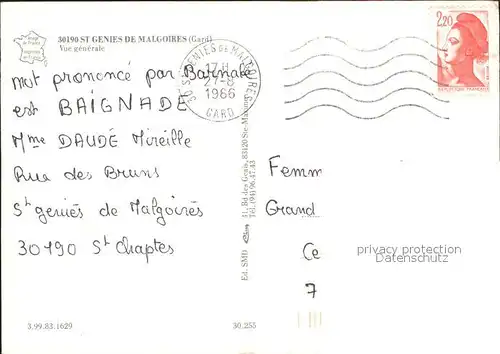 30190 ST GENIES DE MALGOIRES (Gard)
Vue générale
mot prononcé par Barnabé
est BAIGNADE
Mme DAUDÉ Mireille
Rue des Bruns
St geniés de Malgoirès
30190 St Chaptes
3.99.83.1629
30.255
Ed. SMD
11, Bd des Genêts, 83120 Ste-Maxime
Tél. (94) 96.47.43
30 ST GENIES DE MALGOIRES
17H
27-8
1986
GARD
2,20
REPUBLIQUE FRANÇAISE
Femm
Grand
Ce
7
privacy protection
Datenschutz